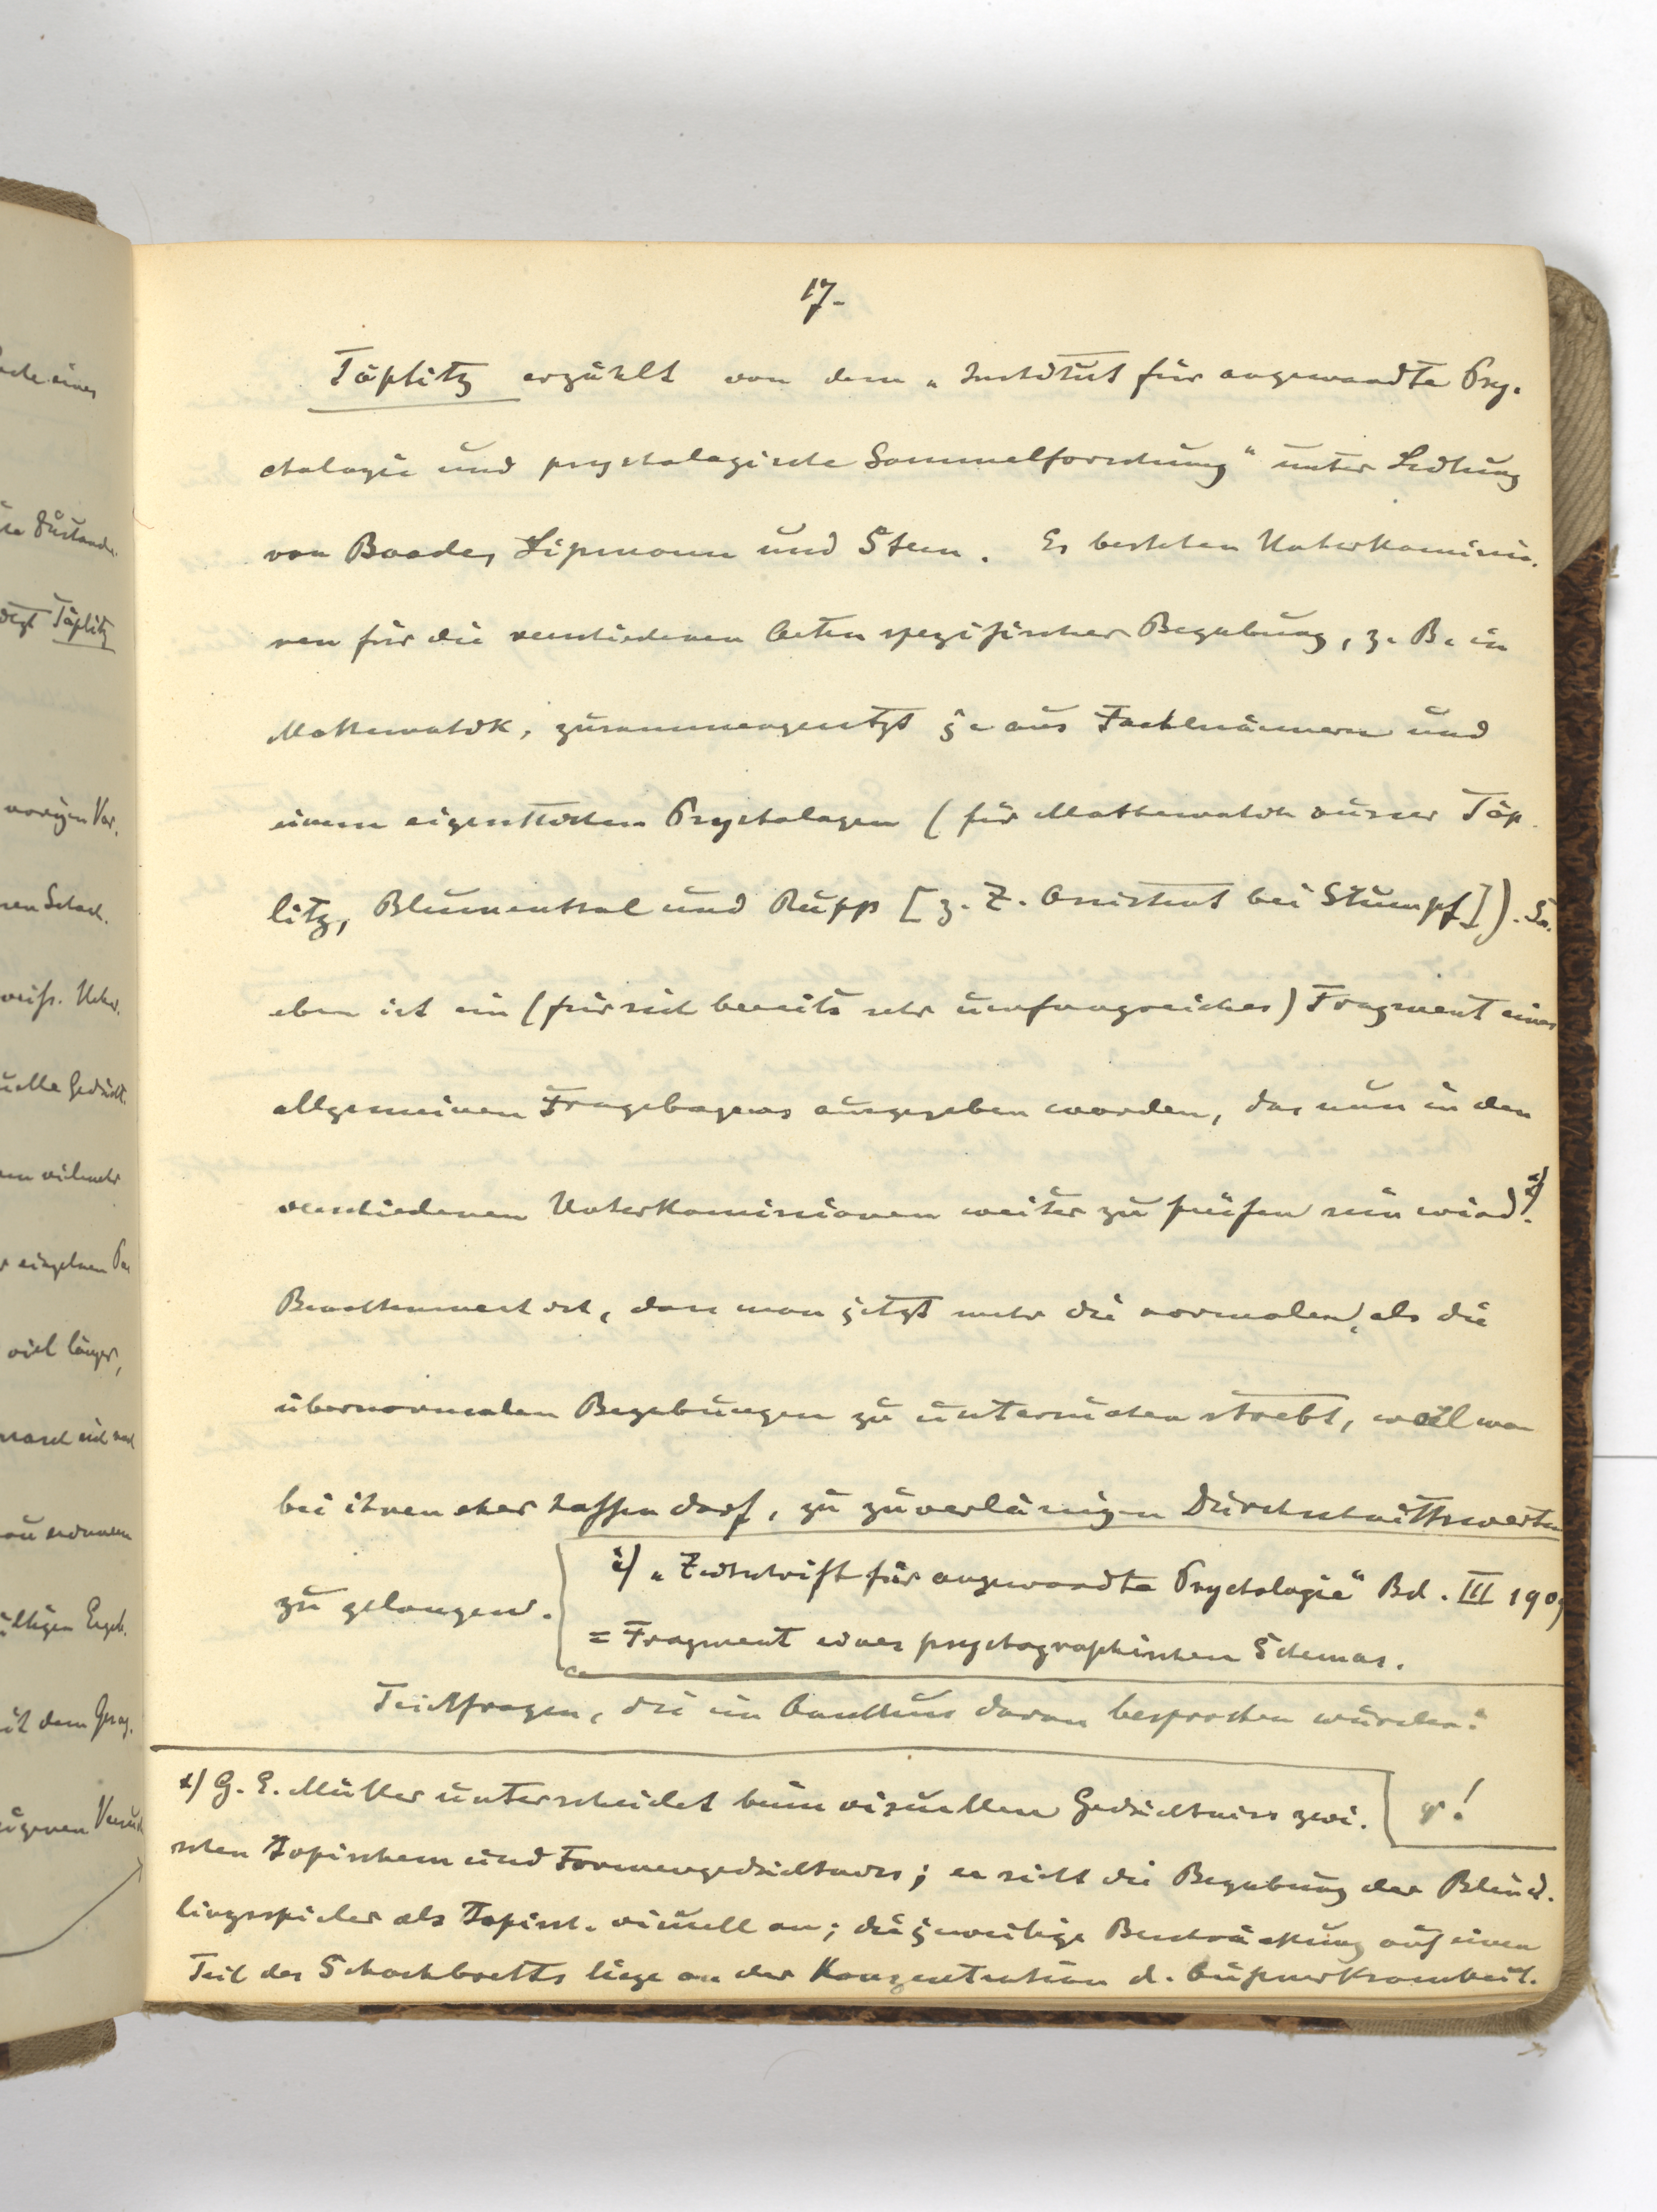 17.
Töplitz erzählt von dem „Institut für angewandte Psy-
chologie und psychologische Sammelforschung" unter Leitung
von Baade, Lipmann und Stern. Es bestehen Unterkommissio-
nen für die verschiedenen Arten spezifischer Begabung, z. B. in
Mathematik, zusammengesetzt je aus Fachmännern und
einem eigentlichen Psychologen (für Mathematik ausser Töp-
litz, Blumenthal und Rupp [z. Z. Assistent bei Stumpf]). So-
eben ist ein (für sich bereits sehr umfangreiches) Fragment eines
allgemeinen Fragebogens ausgegeben worden, das nun in den
verschiedenen Unterkommissionen weiter zu prüfen sein wird.
Bemerkenswert ist, dass man jetzt mehr die normalen, als die
übernormalen Begabungen zu untersuchen strebt, weil man
bei ihnen eher hoffen darf, zu zuverlässigen Durchschnittswerten
zu gelangen.
„Zeitschrift für angewandte Psychologie" Bd. III 1909
= Fragment eines psychographischen Schemas.
Teilfragen, die im Anschluss daran besprochen wurden:
x) G. E. Müller unterscheidet beim visuellen Gedächtniss zwi-
schen topischem und Formengedächtniss; er sieht die Begabung der Blind-
lingsspieler als topisch-visuell an; die jeweilige Beschränkung auf einen
Teil des Schachbretts liege an der Konzentration d. Aufmerksamkeit.
φ!
ache eines
Zustande
Töplitz
vorigen Vor-
nen Schach-
weiss. Unter-
uelle Gedächt-
en vielmehr
r einzelnen Pa
viel länger,
ültigen Ergeb-
it dem Gesag-
eigenen Versuch